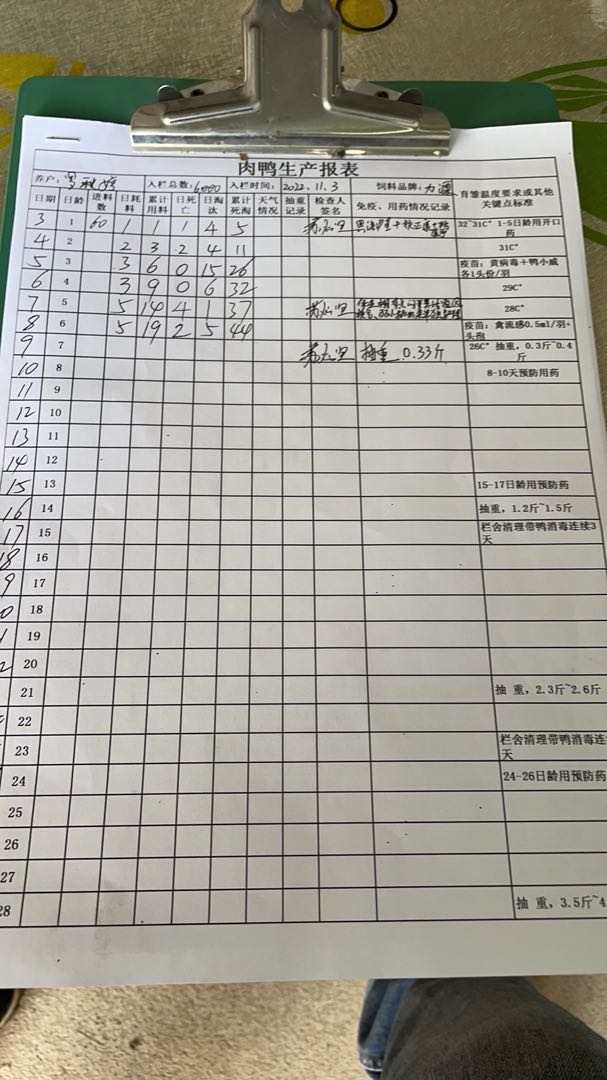 肉鸭生产报表
养户: 入栏总数:6000 入栏时间: 2022.11.3 饲料品牌:力源 育雏温度要求或其他关键点标准
日期 日龄 进料数 日耗料 累计用料 日死亡 日淘汰 累计死淘 天气情况 抽重记录 检查人签名 免疫、用药情况记录
3 1 60 1 1 1 4 5 32~31C° 1-5日龄用开口药
4 2 2 3 2 4 11 31C°
5 3 3 6 0 15 26 疫苗:黄病毒+鸭小威各1头份/羽
6 4 3 9 0 6 32 29C°
7 5 5 14 4 1 37 28C°
8 6 5 19 2 5 44 疫苗:禽流感0.5ml/羽+头孢
9 7 抽重 0.33斤 26C° 抽重,0.3斤~0.4斤
10 8 8-10天预防用药
11 9
12 10
13 11
14 12
15 13 15-17日龄用预防药
16 14 抽重,1.2斤~1.5斤
17 15 栏舍清理带鸭消毒连续3天
8 16
9 17
0 18
19
2 20
21 抽 重,2.3斤~2.6斤
22
23 栏舍清理带鸭消毒连 天
24 24-26日龄用预防药
25
26
27
28 抽 重,3.5斤~4